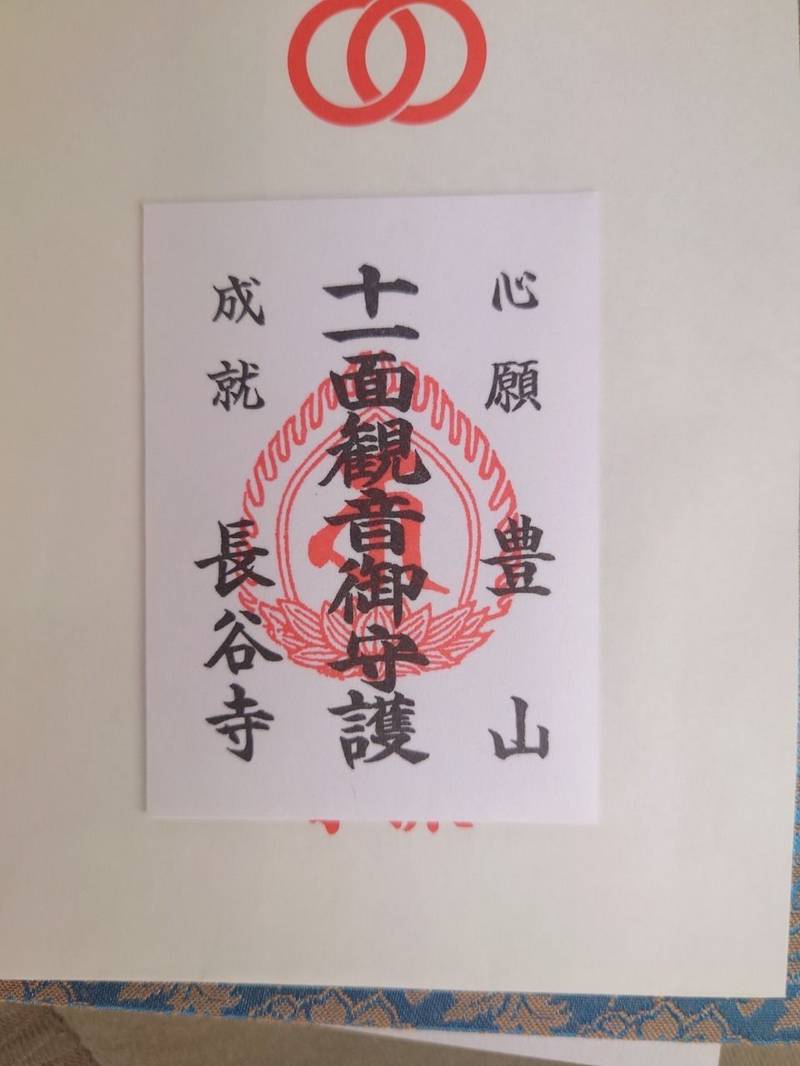 心願 豊山
十一面観音御守護
成就 長谷寺